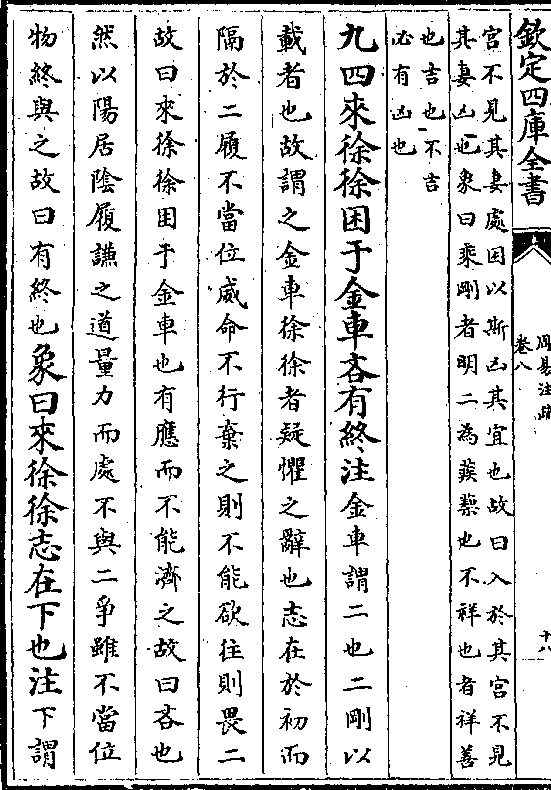 欽定四庫全書
周易注疏
卷八
十八
宮不見其妻處困以斯凶其宜也故曰入於其宮不見
其妻凶也象曰乘剛者明二為蒺藜也不祥也者祥善
也吉也不吉
必有凶也
九四來徐徐困于金車吝有終注金車謂二也二剛以
載者也故謂之金車徐徐者疑懼之辭也志在於初而
隔於二履不當位威命不行棄之則不能欲往則畏二
故曰來徐徐困于金車也有應而不能濟之故曰吝也
然以陽居陰履謙之道量力而處不與二爭雖不當位
物終與之故曰有終也象曰來徐徐志在下也注下謂